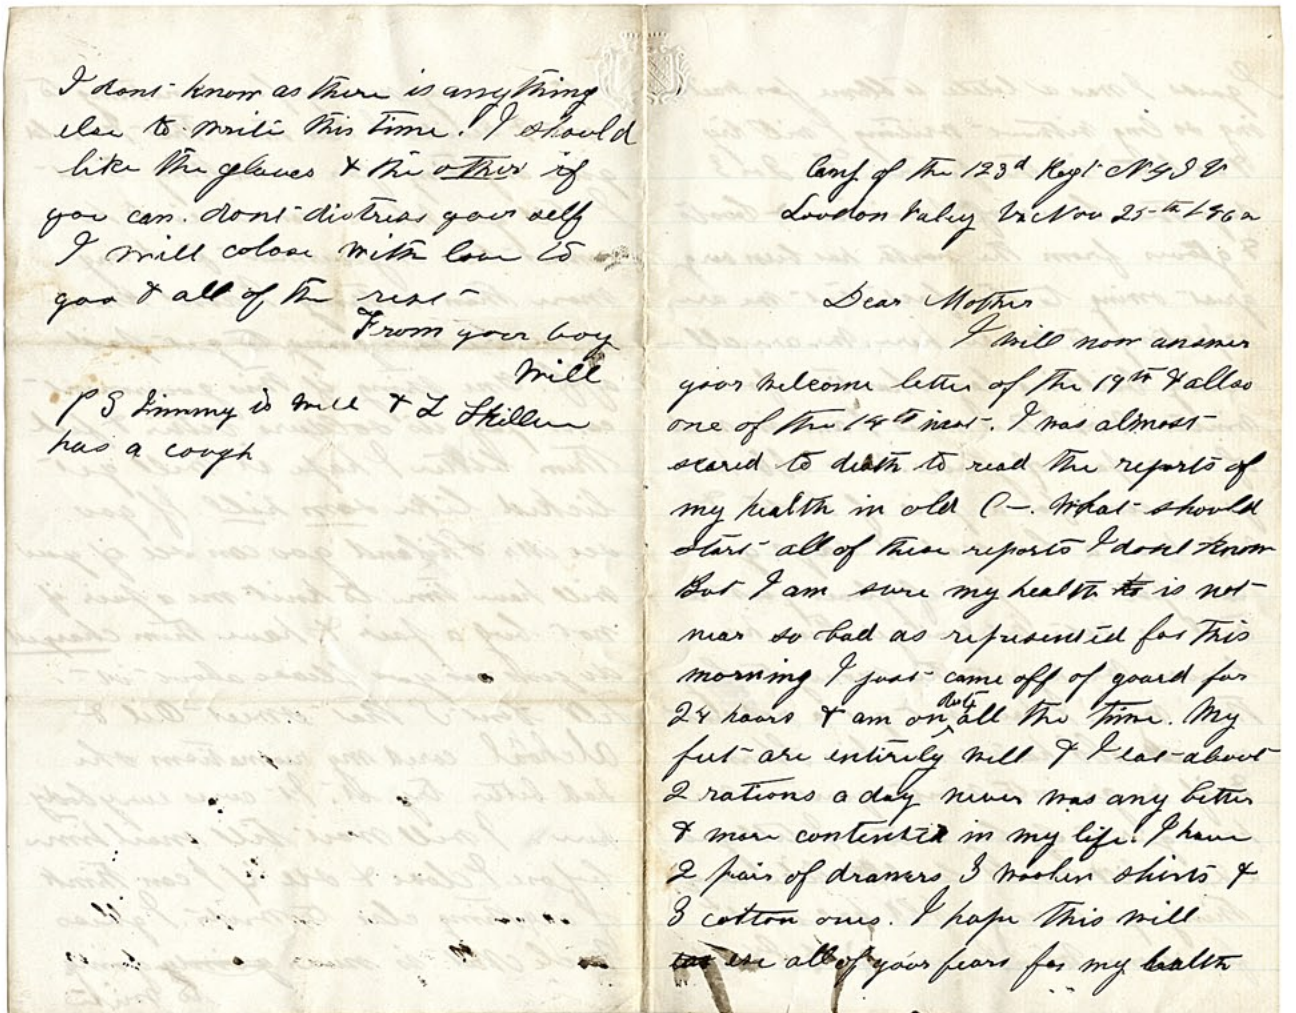 I dont know as there is anything
else to write this time. I should
like the gloves & the other if
you can. dont distress your self
I will colose with love to
you & all of the rest
From your boy
Will
P S Jimmy is well & L Skillen
has a cough
Camp of the 123d Regt N Y S V
Loudon Valey Va Nov 25th 1862
Dear Mother
I will now answer
your welcome letter of the 19th & allso
one of the 18th inst. I was almost
scared to death to read the reports of
my health in old C—. What should
start all of these reports I dont know
But I am sure my health is not
near so bad as represented for this
morning I just came off of guard for
24 hours & am on duty all the time. My
feet are entirely well & I eat about
2 rations a day never was any better
& more contented in my life. I have
2 pair of drawers 3 woolen shirts &
3 cotton ones. I hope this will
all of your fears for my health